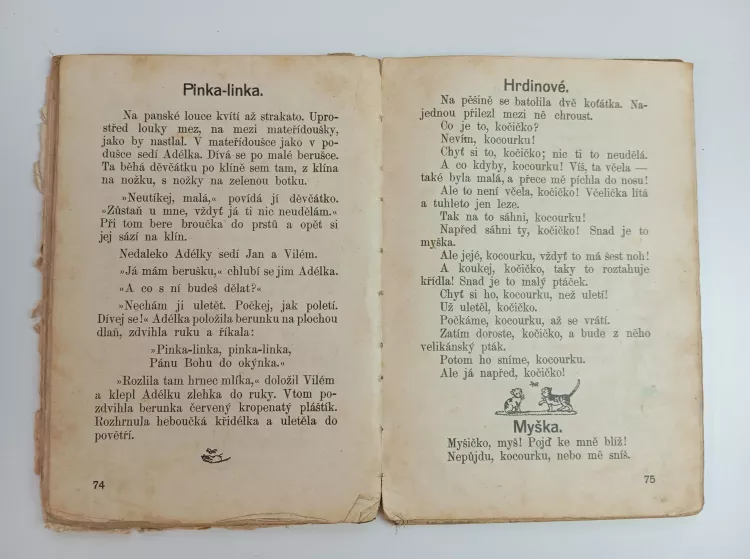 Pinka-linka.
Na panské louce kvítí až strakato. Upro-
střed louky mez, na mezi mateřídoušky,
jako by nastlal. V mateřídoušce jako v po-
dušce sedí Adélka. Dívá se po malé berušce.
Ta běhá děvčátku po klíně sem tam, z klína
na nožku, s nožky na zelenou botku.
»Neutíkej, malá,« povídá jí děvčátko.
»Zůstaň u mne, vždyť já ti nic neudělám.«
Při tom bere broučka do prstů a opět si
jej sází na klín.
Nedaleko Adélky sedí Jan a Vilém.
»Já mám berušku,« chlubí se jim Adélka.
»A co s ní budeš dělat?«
»Nechám jí uletět. Počkej, jak poletí.
Dívej se!« Adélka položila berunku na plochou
dlaň, zdvihla ruku a říkala:
»Pinka-linka, pinka-linka,
Pánu Bohu do okýnka.«
»Rozlila tam hrnec mlíka,« doložil Vilém
a klepl Adélku zlehka do ruky. Vtom po-
zdvihla berunka červený kropenatý pláštík.
Rozhrnula heboučká křidélka a uletěla do
povětří.
74
Hrdinové.
Na pěšině se batolila dvě koťátka. Na-
jednou přilezl mezi ně chroust.
Co je to, kočičko?
Nevím, kocourku!
Chyť si to, kočičko; nic ti to neudělá.
A co kdyby, kocourku! Víš, ta včela —
také byla malá, a přece mě píchla do nosu!
Ale to není včela, kočičko! Včelička lítá
a tuhleto jen leze.
Tak na to sáhni, kocourku!
Napřed sáhni ty, kočičko! Snad je to
myška.
Ale jejé, kocourku, vždyť to má šest noh!
A koukej, kočičko, taky to roztahuje
křídla! Snad je to malý ptáček.
Chyť si ho, kocourku, než uletí!
Už uletěl, kočičko.
Počkáme, kocourku, až se vrátí.
Zatím doroste, kočičko, a bude z něho
velikánský pták.
Potom ho sníme, kocourku.
Ale já napřed, kočičko!
Myška.
Myšičko, myš! Pojď ke mně blíž!
Nepůjdu, kocourku, nebo mě sníš.
75